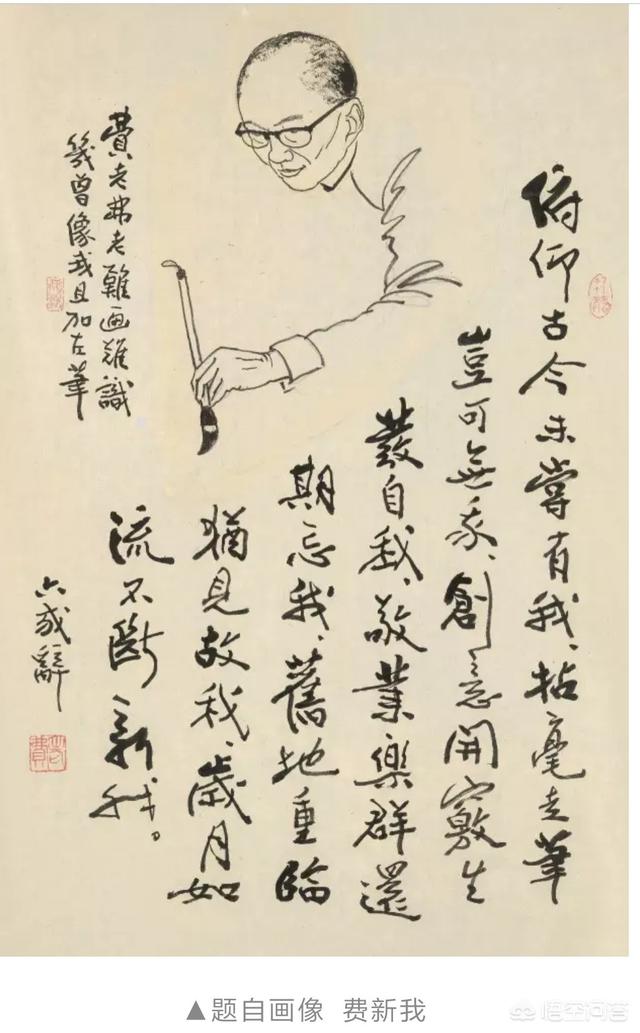 俯仰古今未嘗有我、拈毫走筆
豈可無我、創意開竅生
發自我、敬業樂群還
期忘我、舊地重臨
猶見故我、歲月如
流不斷新我。
六我辭
費老弗老難画難識
幾曾像我且加左筆
▲题自画像 费新我
悟空问答